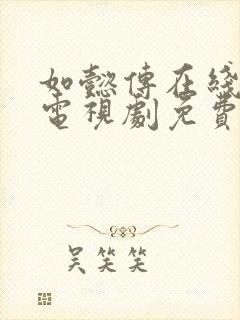 如懿傳在綫
電視劇免費
吳笑笑